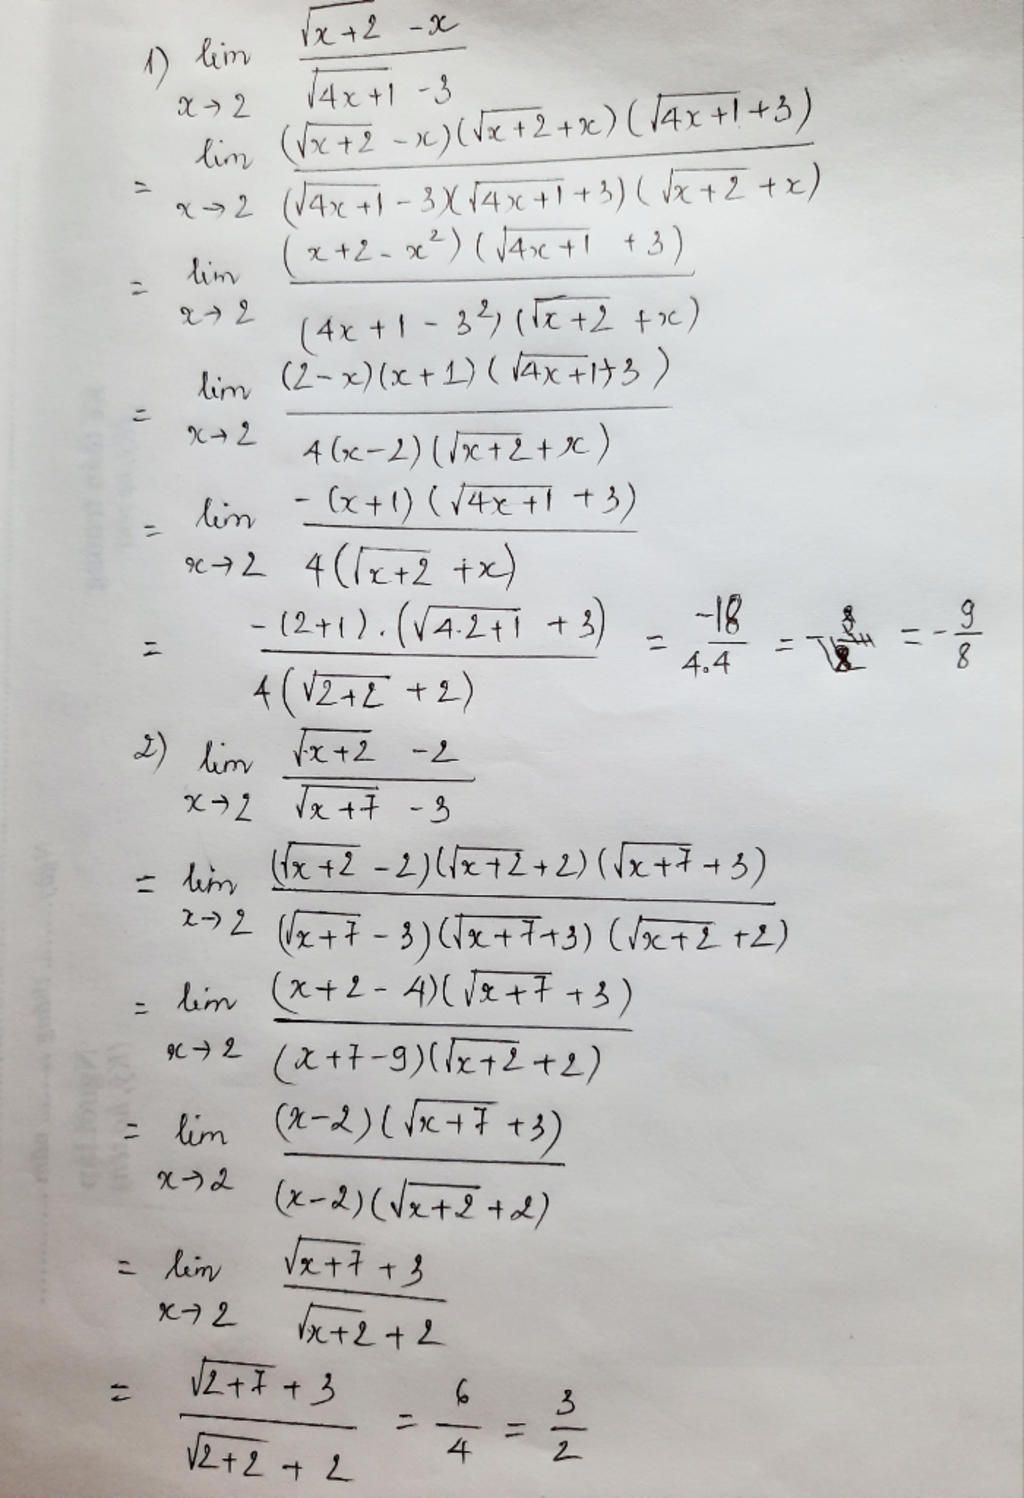 1) lim x→2 (√(x+2) - x)/(√(4x+1) - 3)
= lim x→2 ((√(x+2) - x)(√(x+2) + x)(√(4x+1) + 3))/((√(4x+1) - 3)(√(4x+1) + 3)(√(x+2) + x))
= lim x→2 ((x+2 - x²)(√(4x+1) + 3))/((4x+1 - 3²)(√(x+2) + x))
= lim x→2 ((2-x)(x+1)(√(4x+1) + 3))/(4(x-2)(√(x+2) + x))
= lim x→2 (-(x+1)(√(4x+1) + 3))/(4(√(x+2) + x))
= (-(2+1).(√(4.2+1) + 3))/(4(√(2+2) + 2)) = -18/4.4 = = -9/8
2) lim x→2 (√(x+2) - 2)/(√(x+7) - 3)
= lim x→2 ((√(x+2) - 2)(√(x+2) + 2)(√(x+7) + 3))/((√(x+7) - 3)(√(x+7) + 3)(√(x+2) + 2))
= lim x→2 ((x+2 - 4)(√(x+7) + 3))/((x+7-9)(√(x+2) + 2))
= lim x→2 ((x-2)(√(x+7) + 3))/((x-2)(√(x+2) + 2))
= lim x→2 (√(x+7) + 3)/(√(x+2) + 2)
= (√(2+7) + 3)/(√(2+2) + 2) = 6/4 = 3/2